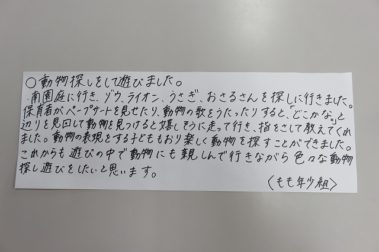 ○動物探しをして遊びました。
南園庭に行き、ゾウ、ライオン、うさぎ、おさるさんを探しに行きました。
保育者がペープサートを見せたり、動物の歌をうたったりすると、「どこかな」と
辺りを見回して動物を見つけると嬉しそうに走って行き、指をさして教えてくれ
ました。動物の表現をする子どももおり楽しく動物を探すことができました。
これからも遊びの中で動物にも親しんで行きながら色々な動物
探し遊びをしたいと思います。
（もも年少組）